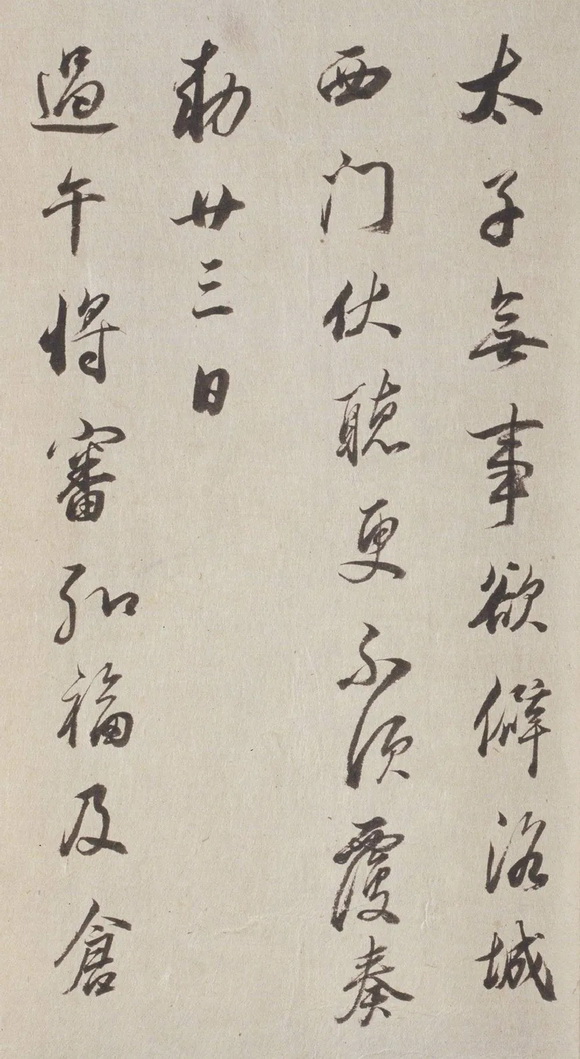 太子無事欲僻洛城
西门伏聴更不須覆奏
勅廿三日
過午将審弘福及倉